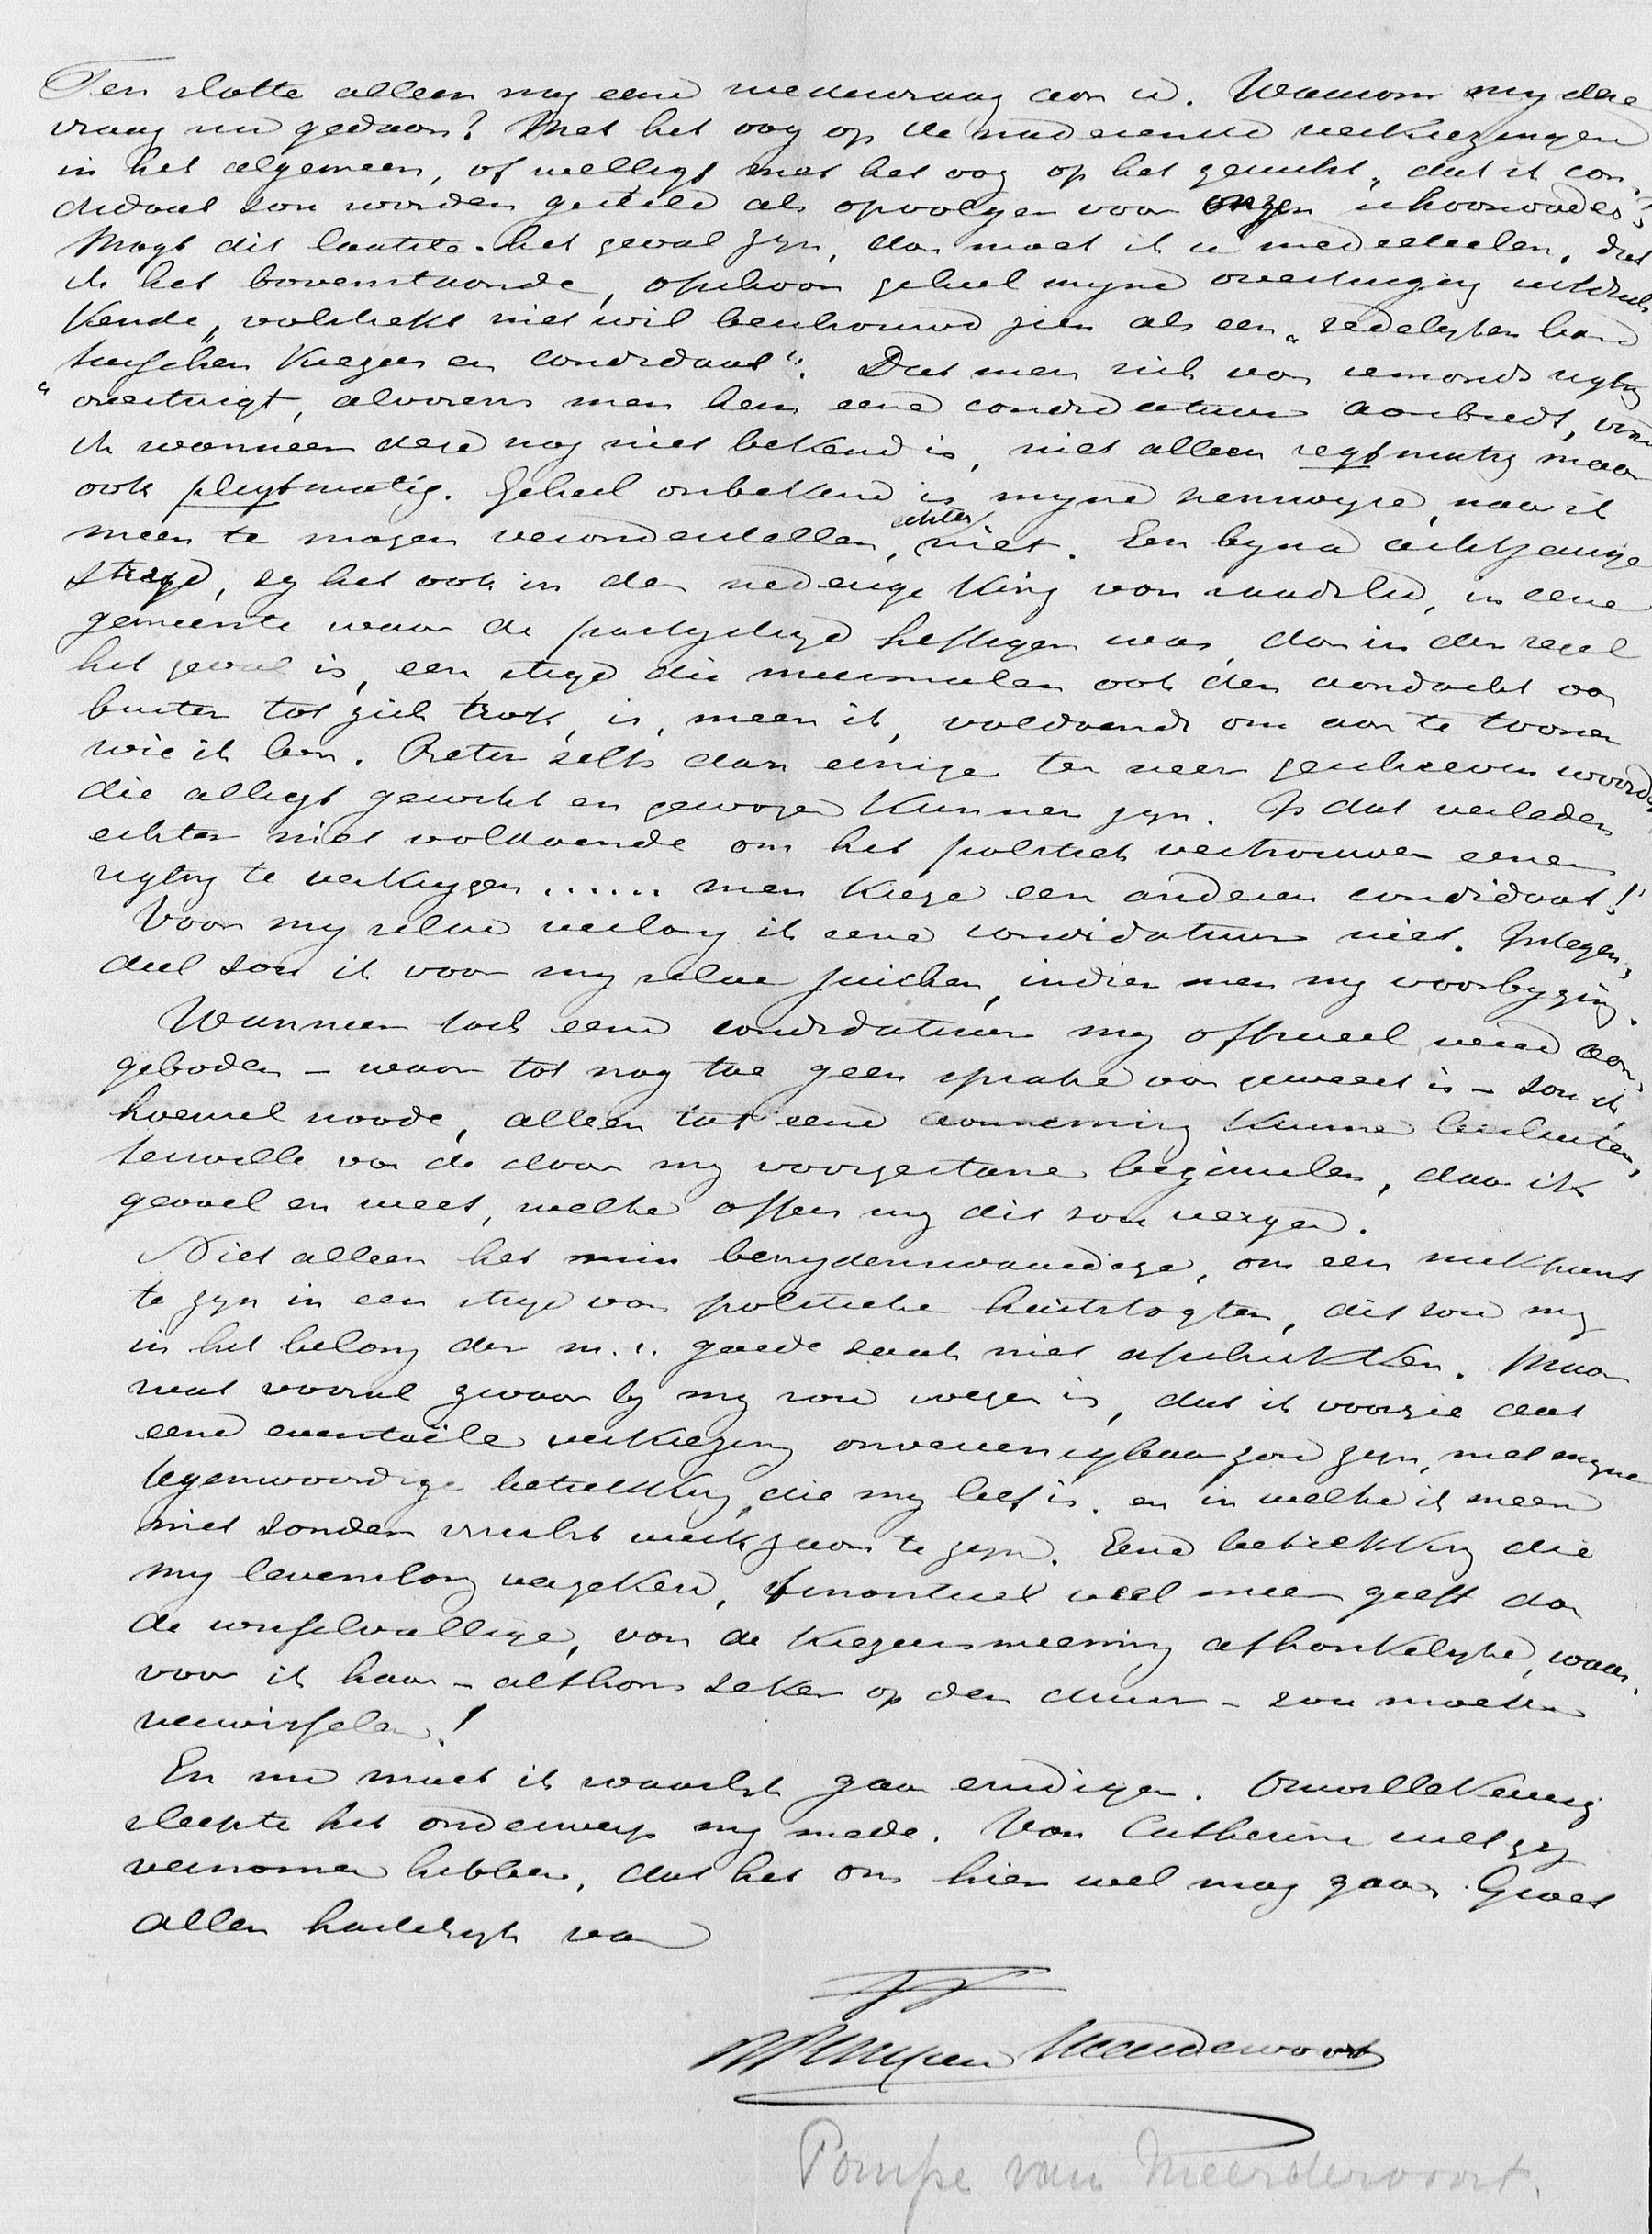 Ten slotte alleen nog eene wedervraag aan U. Waarom my deze
vraag nu gedaan? Met het oog op de aanstaande verkiezingen
in het algemeen, of welligt met het oog op het gerucht, dat ik can-
didaat zou worden gesteld als opvolger van onzen schoonvader?
Mogt dit laatste het geval zyn, dan moet ik u mededeelen, dat
ik het bovenstaande, ofschoon geheel myne overtuiging uitdruk-
kende, volstrekt niet wil beschouwd zien als een "zedelyken band
tusschen kiezers en candidaat". Dat men zich van iemands rigting
overtuigt, alvorens men hem eene candidatuur aanbiedt, vind
ik wanneer deze nog niet bekend is, niet alleen regtmatig maar
ook pligtmatig. Geheel onbekend is myne zienswyze, naar ik
meen te mogen veronderstellen, echter niet. Een byna achtjarige
stryd, zy het ook in den nederige kring van raadslid, in eene
gemeente waar de partystryd heftiger was, dan in den regel
het geval is, een stryd die meermalen ook den aandacht van
buiten tot zich trok, is, meen ik, voldoende om aan te toonen
wie ik ben. Beter zelfs dan eenige ter neer geschreven woorden
die alligt gewikt en gewogen kunnen zyn. Is dat verleden
echter niet voldoende om het politiek vertrouwen eener
rigting te verkrygen...... men kieze een anderen candidaat!
Voor my zelve verlang ik eene candidatuur niet. Integen-
deel zou ik voor my zelve juichen, indien men my voorbyging.
Wanneer toch eene candidatuur my officieel werd aan-
geboden – waar tot nog toe geen sprake van geweest is – zou ik,
hoewel noode, alleen tot eene aanneming kunnen besluiten,
terwille van de door my voorgestane beginselen, daar ik
gevoel en weet, welke offers my dit zou vergen.
Niet alleen het min benydenswaardige, om een mikpunt
te zyn in een stryd van politieke hartstogten, dit zou my
in het belang der m.i. goede zaak niet afschrikken. Maar
wat vooral zwaar by my zou wegen is, dat ik voorzie dat
eene eventuële verkiezing onvereenigbaar zou zyn, met myne
tegenwoordige betrekking, die my lief is. en in welke ik meen
niet zonder vrucht werkzaam te zyn. Eene betrekking die
my levenslang verzekerd, financieel veel meer geeft dan
de wisselvallige, van de kiezersmeening afhankelyke, waar-
voor ik haar – althans zeker op den duur – zou moeten
verwisselen!
En nu moet ik waarlyk gaan eindigen. Onwillekeurig
sleepte het onderwerp my mede. Van Catherine zult gy
vernomen hebben, dat het ons hier wel mag gaan. Groet
allen hartelyk van
Pompe van Meerdervoort.